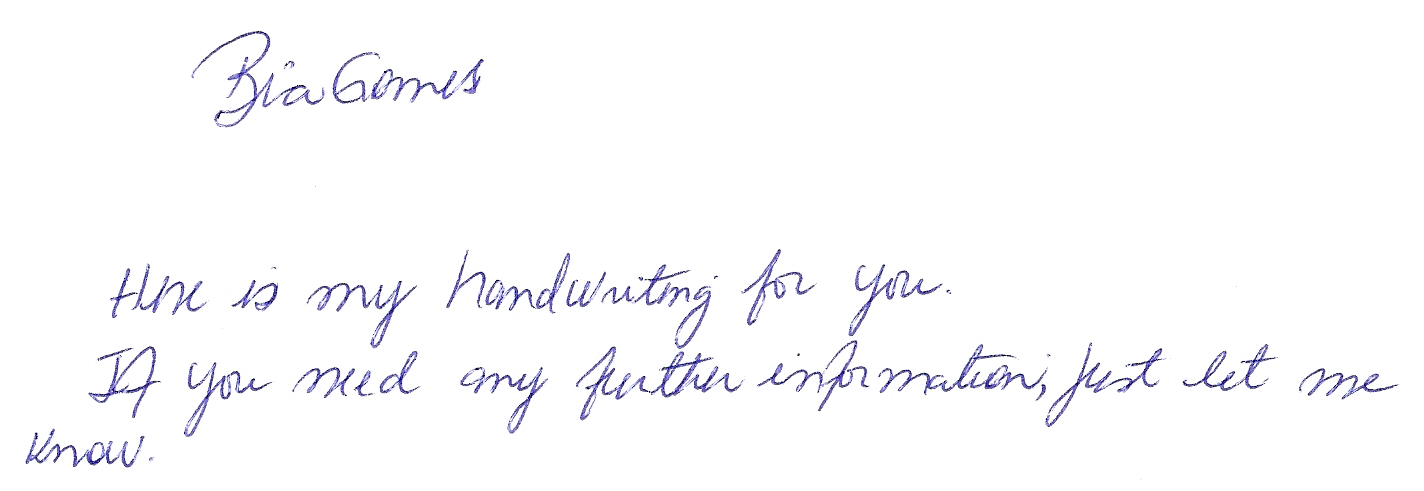 Bia Gomes
Here is my handwriting for you.
If you need any further information, just let me
know.